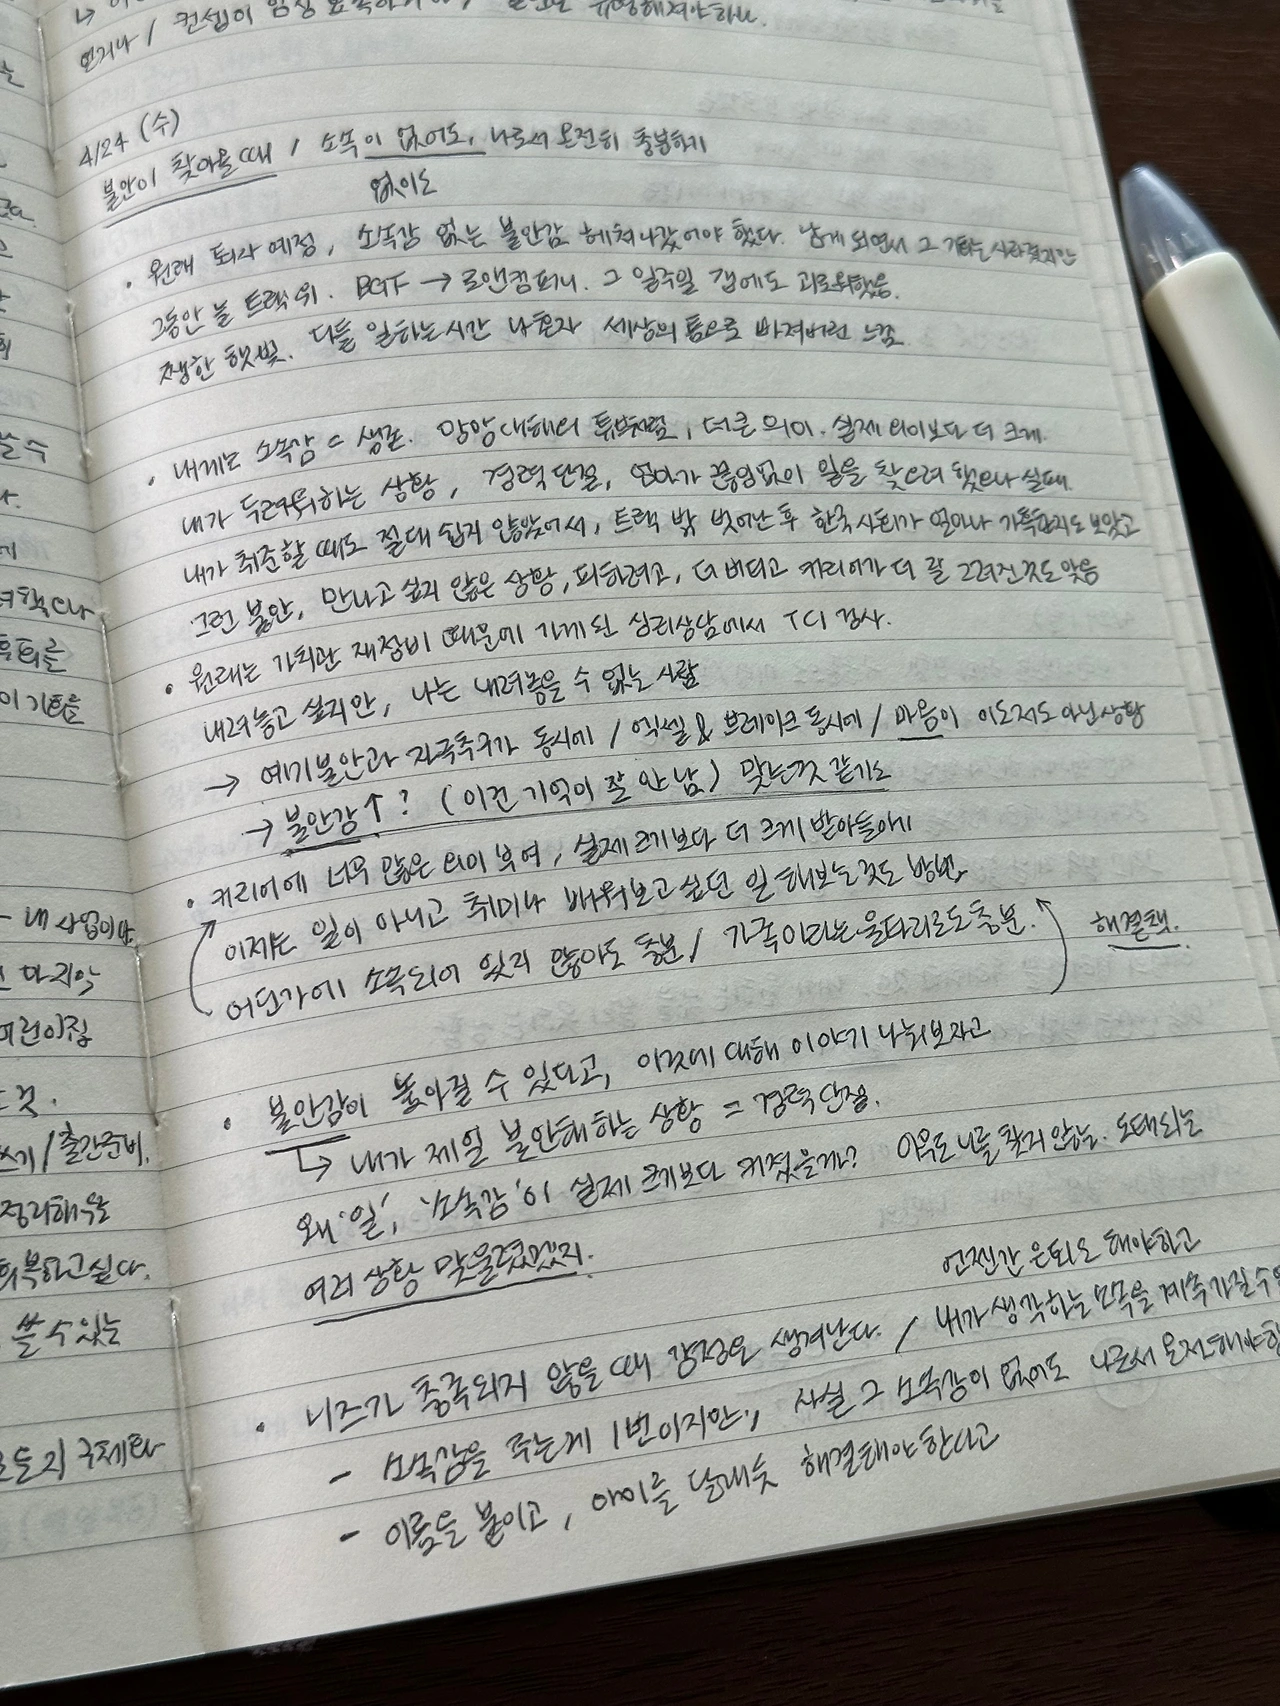 4/24 (수)
불안이 찾아올 때 / 소속이 없어도, 나로서 온전히 충분하기
없이도
• 원래 퇴사 예정, 소속감 없는 불안감 헤쳐나갔어야 했다. 남게 되면서 그 기회는 사라졌지만
그동안 늘 트랙 위. BGF → 로앤컴퍼니. 그 일주일 갭에도 괴로워했음.
쨍한 햇빛. 다들 일하는 시간 나혼자 세상의 틈으로 빠져버린 느낌.
• 내게는 소속감 = 생존. 망망대해의 튜브처럼, 더 큰 의미. 실제 의미보다 더 크게.
내가 두려워하는 상황, 경력단절, 엄마가 끊임없이 일을 찾으려 했으나 실패.
내가 취준할 때도 절대 쉽지 않았어서, 트랙 밖 벗어난 후 한국사회가 얼마나 가혹한지도 보았고
그런 불안, 만나고 싶지 않은 상황, 피하려고, 더 버티고 커리어가 더 잘 그려진 것도 맞음
• 원래는 가치관 재정비 때문에 가게 된 심리상담에서 TCI 검사.
내려놓고 싶지만, 나는 내려놓을 수 없는 사람
→ 예기불안과 자극추구가 동시에 / 엑셀 & 브레이크 동시에 / 마음이 이도저도 아닌 상황
→ 불안감↑? (이건 기억이 잘 안 남) 맞는 것 같기도
• 커리어에 너무 많은 의미 부여, 실제 크기보다 더 크게 받아들이기
이제는 일이 아니고 취미나 배워보고 싶던 일 해보는 것도 방법,
어딘가에 소속되어 있지 않아도 충분 / 가족이라는 울타리로도 충분.
해결책.
• 불안감이 높아질 수 있다고, 이것에 대해 이야기 나눠보자고
↳ 내가 제일 불안해하는 상황 = 경력단절.
왜 '일', '소속감'이 실제 크기보다 커졌을까? 아무도 나를 찾지 않는. 도태되는
여러 상황 맞물렸겠지.
언젠간 은퇴도 해야하고
• 니즈가 충족되지 않을 때 감정은 생겨난다. / 내가 생각하는 모습을 계속 가질 수
- 소속감을 주는게 1번이지만, 사실 그 소속감이 없어도 나로서 온전해야
- 이름을 붙이고, 아이를 달래듯 해결해야 한다고